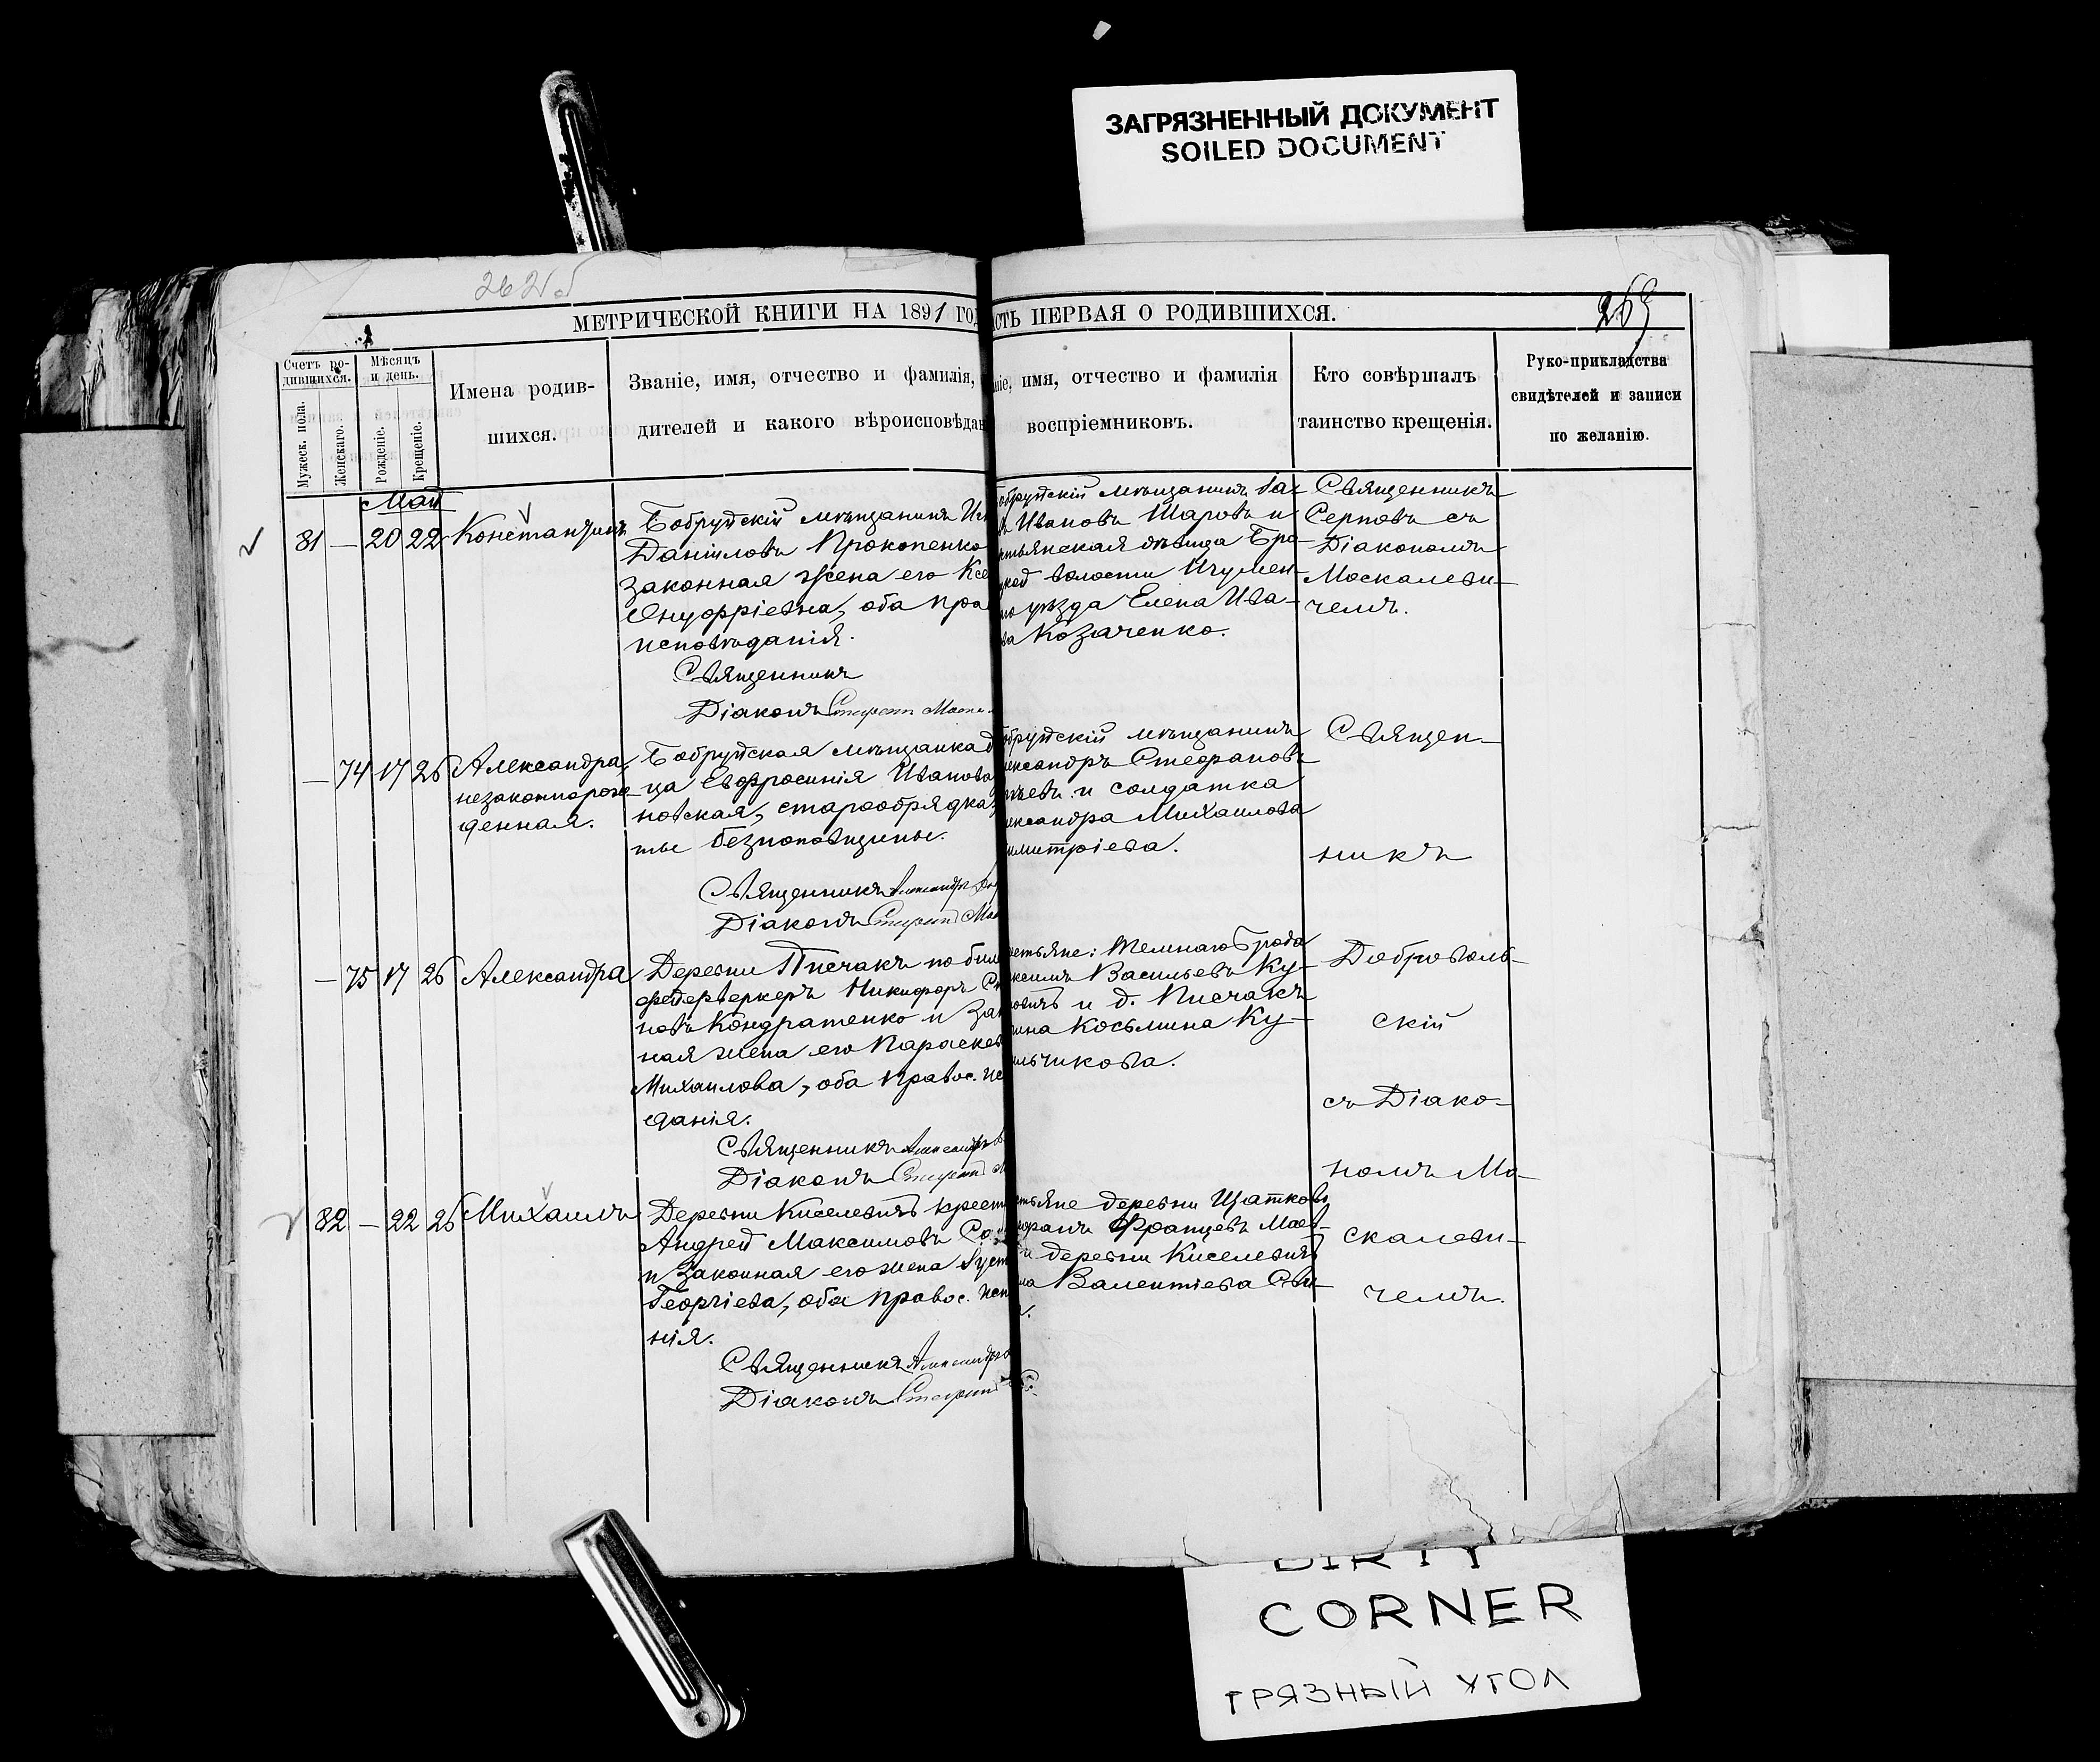 ЗАГРЯЗНЕННЫЙ ДОКУМЕНТ
SOILED DOCUMENT
МЕТРИЧЕСКОЙ КНИГИ НА 1891 ГОД
СТЬ ПЕРВАЯ О РОДИВШИХСЯ.
Счетъ ро-
дившихся.
Мужеск. пола.
Женскаго.
Мѣсяцъ
и день.
Рожденіе.
Крещеніе.
Имена родив-
шихся.
Званіе, имя, отчество и фамилія,
дителей и какого вѣроисповѣдан
ніе, имя, отчество и фамилія
воспріемниковъ.
Кто совѣршалъ
таинство крещенія.
Руко-прикладства
свидѣтелей и записи
по желанію.
Май
81 — 20 22 Константинъ
Бобруйскій мѣщанинъ
Даніиловъ Прокопенко
законная жена его Ксе
Онуфріевна, оба пра
исповѣданія.
Священникъ
Діаконъ
обруйскій мѣщанинъ
Ивановъ Шаровъ и
стьянская дѣвица Бро-
волости Игумен-
уѣзда Елена Ива-
ва Козаченко.
Священникъ
Серповъ съ
Діакономъ
Москалеви-
чемъ.
— 74 17 26 Александра,
незаконнорож-
денная.
Бобруйская мѣщанка д
ца Евфросинія Иванова
новская, старообрядка,
безпоповщины.
Священникъ Александръ
Діаконъ
обруйскій мѣщанинъ
ександръ Стефановъ
и солдатка
ександра Михаилова
имитріева.
— 75 17 26 Александра
Деревни Писчакъ по бил
фейерверкеръ Никифоръ
новъ Кондратенко и зак
ная жена его Параскев
Михаилова, оба правос. ис
данія.
Священникъ Александръ
Діаконъ
естьяне:
ксимъ Васильевъ Ку-
и д. Писчакъ
Косьмина Ку-
льчикова.
82 — 22 26 Михаилъ
Деревни Киселевичъ крест
Андрей Максимовъ
и законная его жена Іуст
Георгіева, оба правос. исп
нія.
Священникъ Александръ
Діаконъ
стьяне деревни Щатково
Францевъ Маев-
и деревни Киселевичъ
на Валентіева Сви-
Священ-
никъ
Доброволь-
скій
съ Діако-
номъ Мо-
скалеви-
чемъ.
DIRTY
CORNER
ГРЯЗНЫЙ УГОЛ